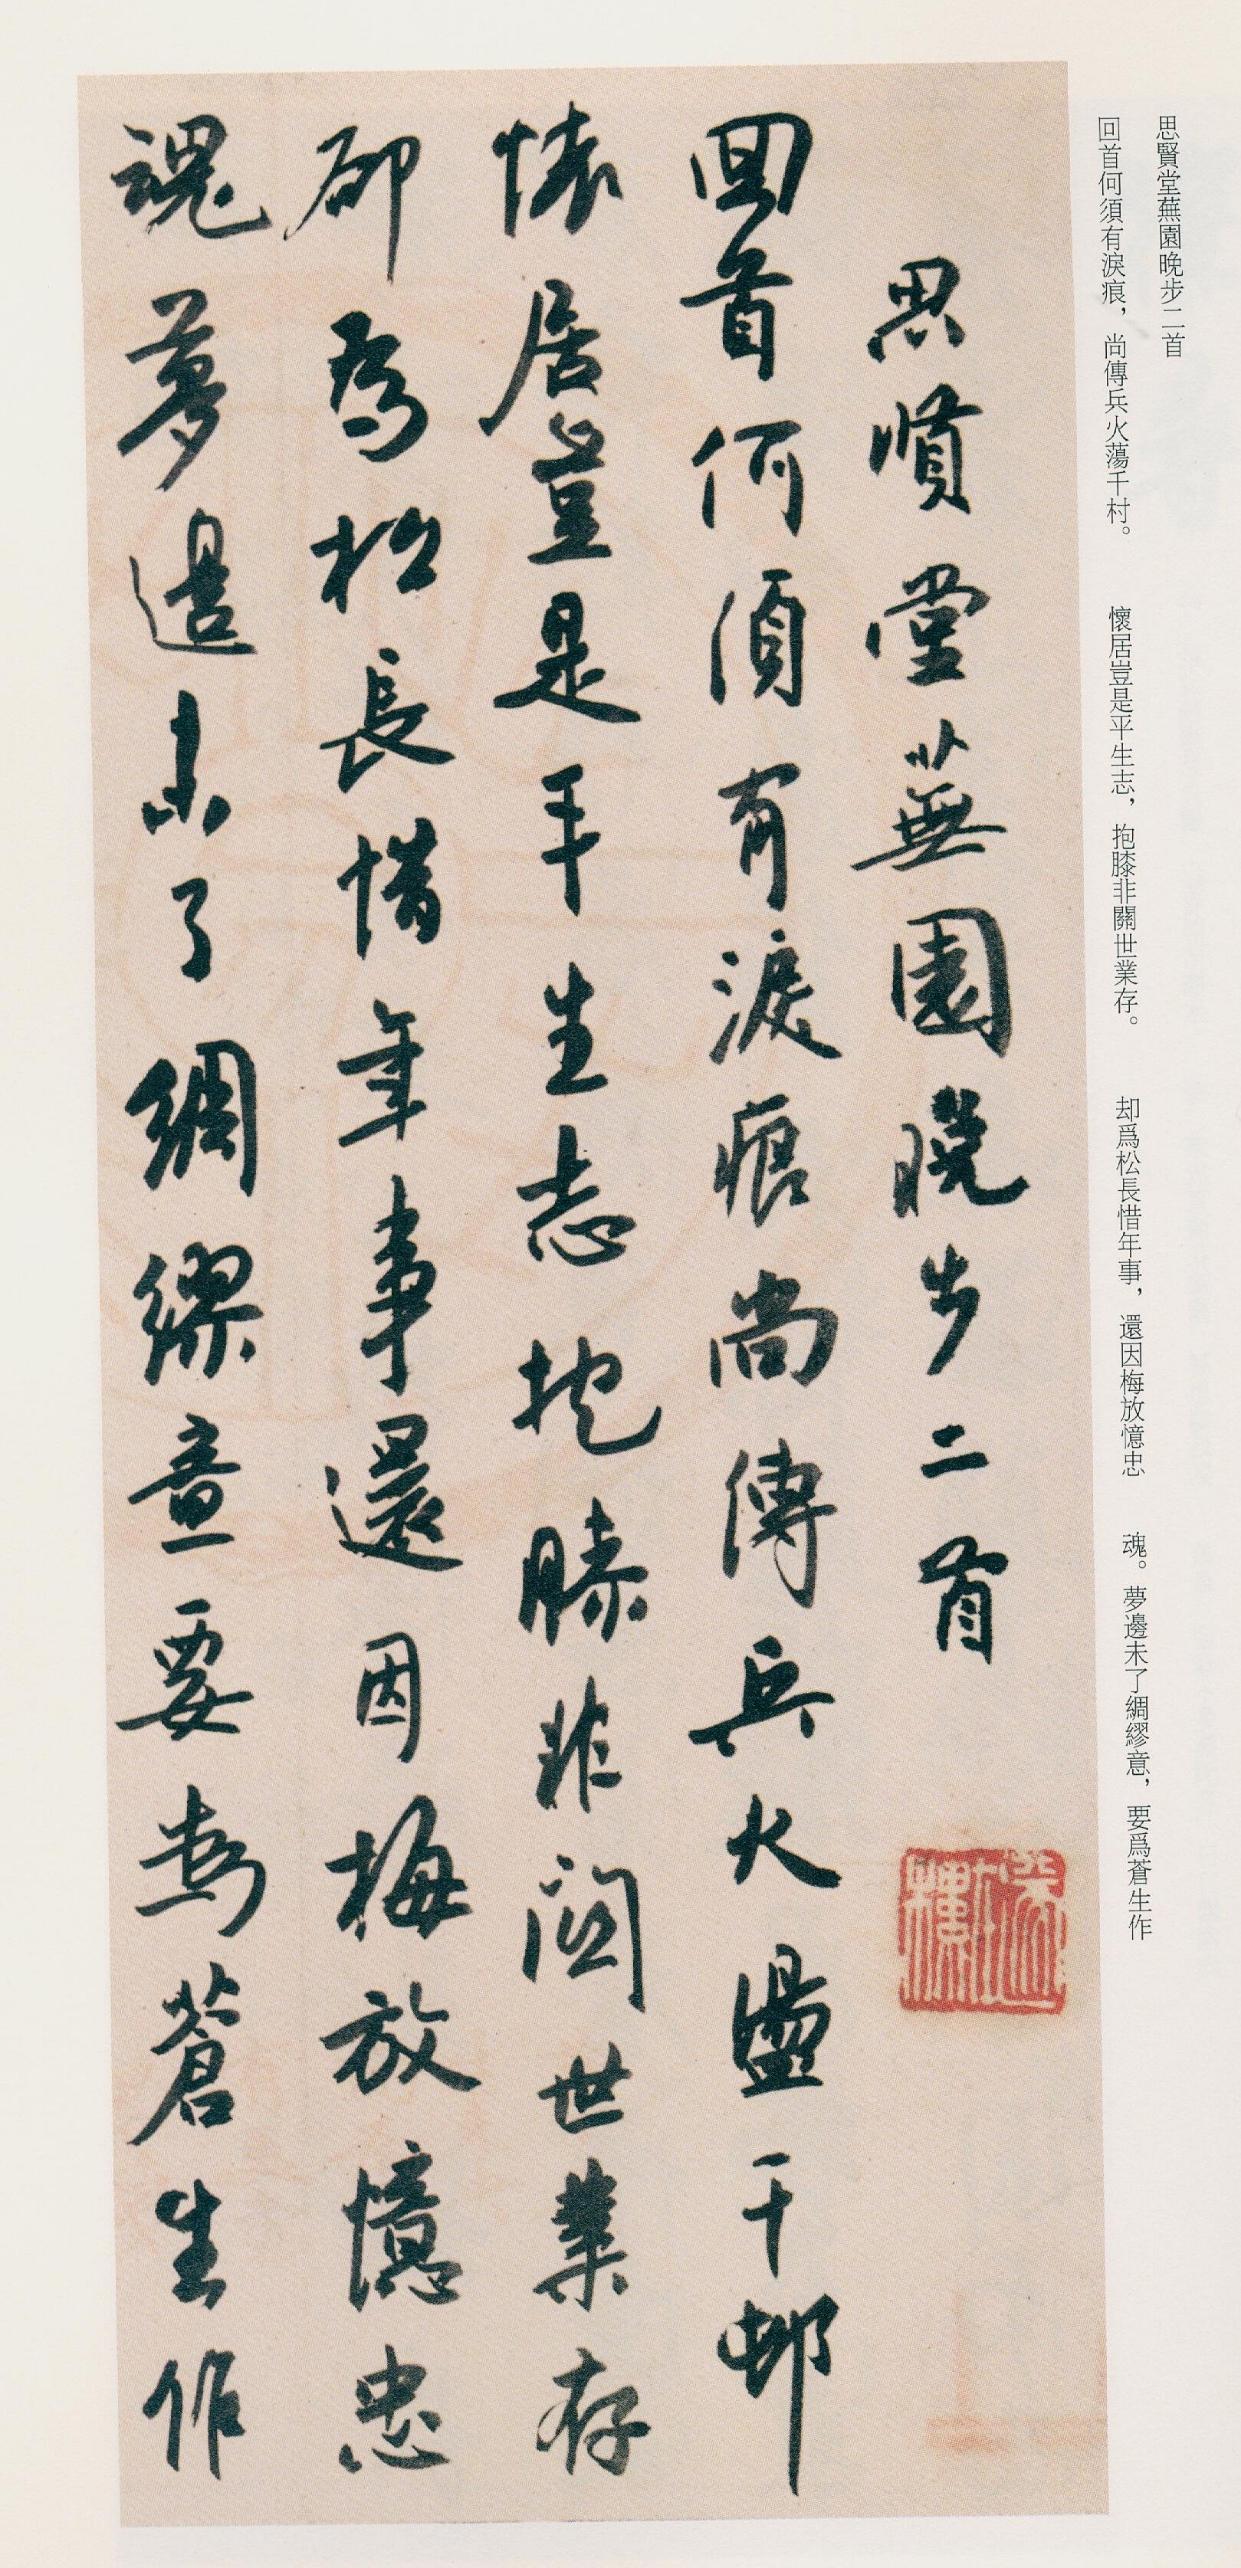 思賢堂蕪園晚步二首
回首何須有淚痕，尚傳兵火蕩千村。 懷居豈是平生志，抱膝非關世業存。 却爲松長惜年事，還因梅放憶忠 魂。夢邊未了綢繆意，要爲蒼生作
思順堂蕪園晚步二首
回首何須有淚痕尚傳兵火盪千邨
懐居豈是平生志抱膝非関世業存
卻爲松長惜年事還因梅放憶忠
魂夢邊未了綢繆意要爲蒼生作